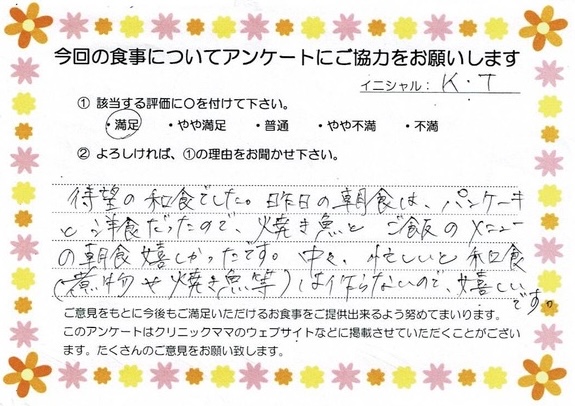 今回の食事についてアンケートにご協力をお願いします
イニシャル： K・T
① 該当する評価に〇を付けて下さい。
・満足 ・やや満足 ・普通 ・やや不満 ・不満
② よろしければ、①の理由をお聞かせ下さい。
待望の和食でした。昨日の朝食は、パンケーキ
と洋食だったので、焼き魚と ご飯のメニュー
の朝食嬉しかったです。中々、忙しいと和食
(煮物や焼き魚等)は作らないので、嬉しい
です。
ご意見をもとに今後もご満足いただけるお食事をご提供出来るよう努めてまいります。
このアンケートはクリニックママのウェブサイトなどに掲載させていただくことがござい
ます。たくさんのご意見をお願い致します。